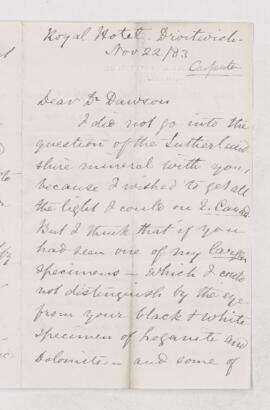 Royal Hotel. Droitwich
Nov 22/83
Carpenter
Dear Dr Dawson
I did not go into the
question of the Sutherland-
shire mineral with you,
because I wished to get all
the light I could on E. Canad.
But I think that if you
had seen one of my larger
specimens — which I could
not distinguish by the eye
from your black & white
specimen of loganite and
Dolomite — and some of